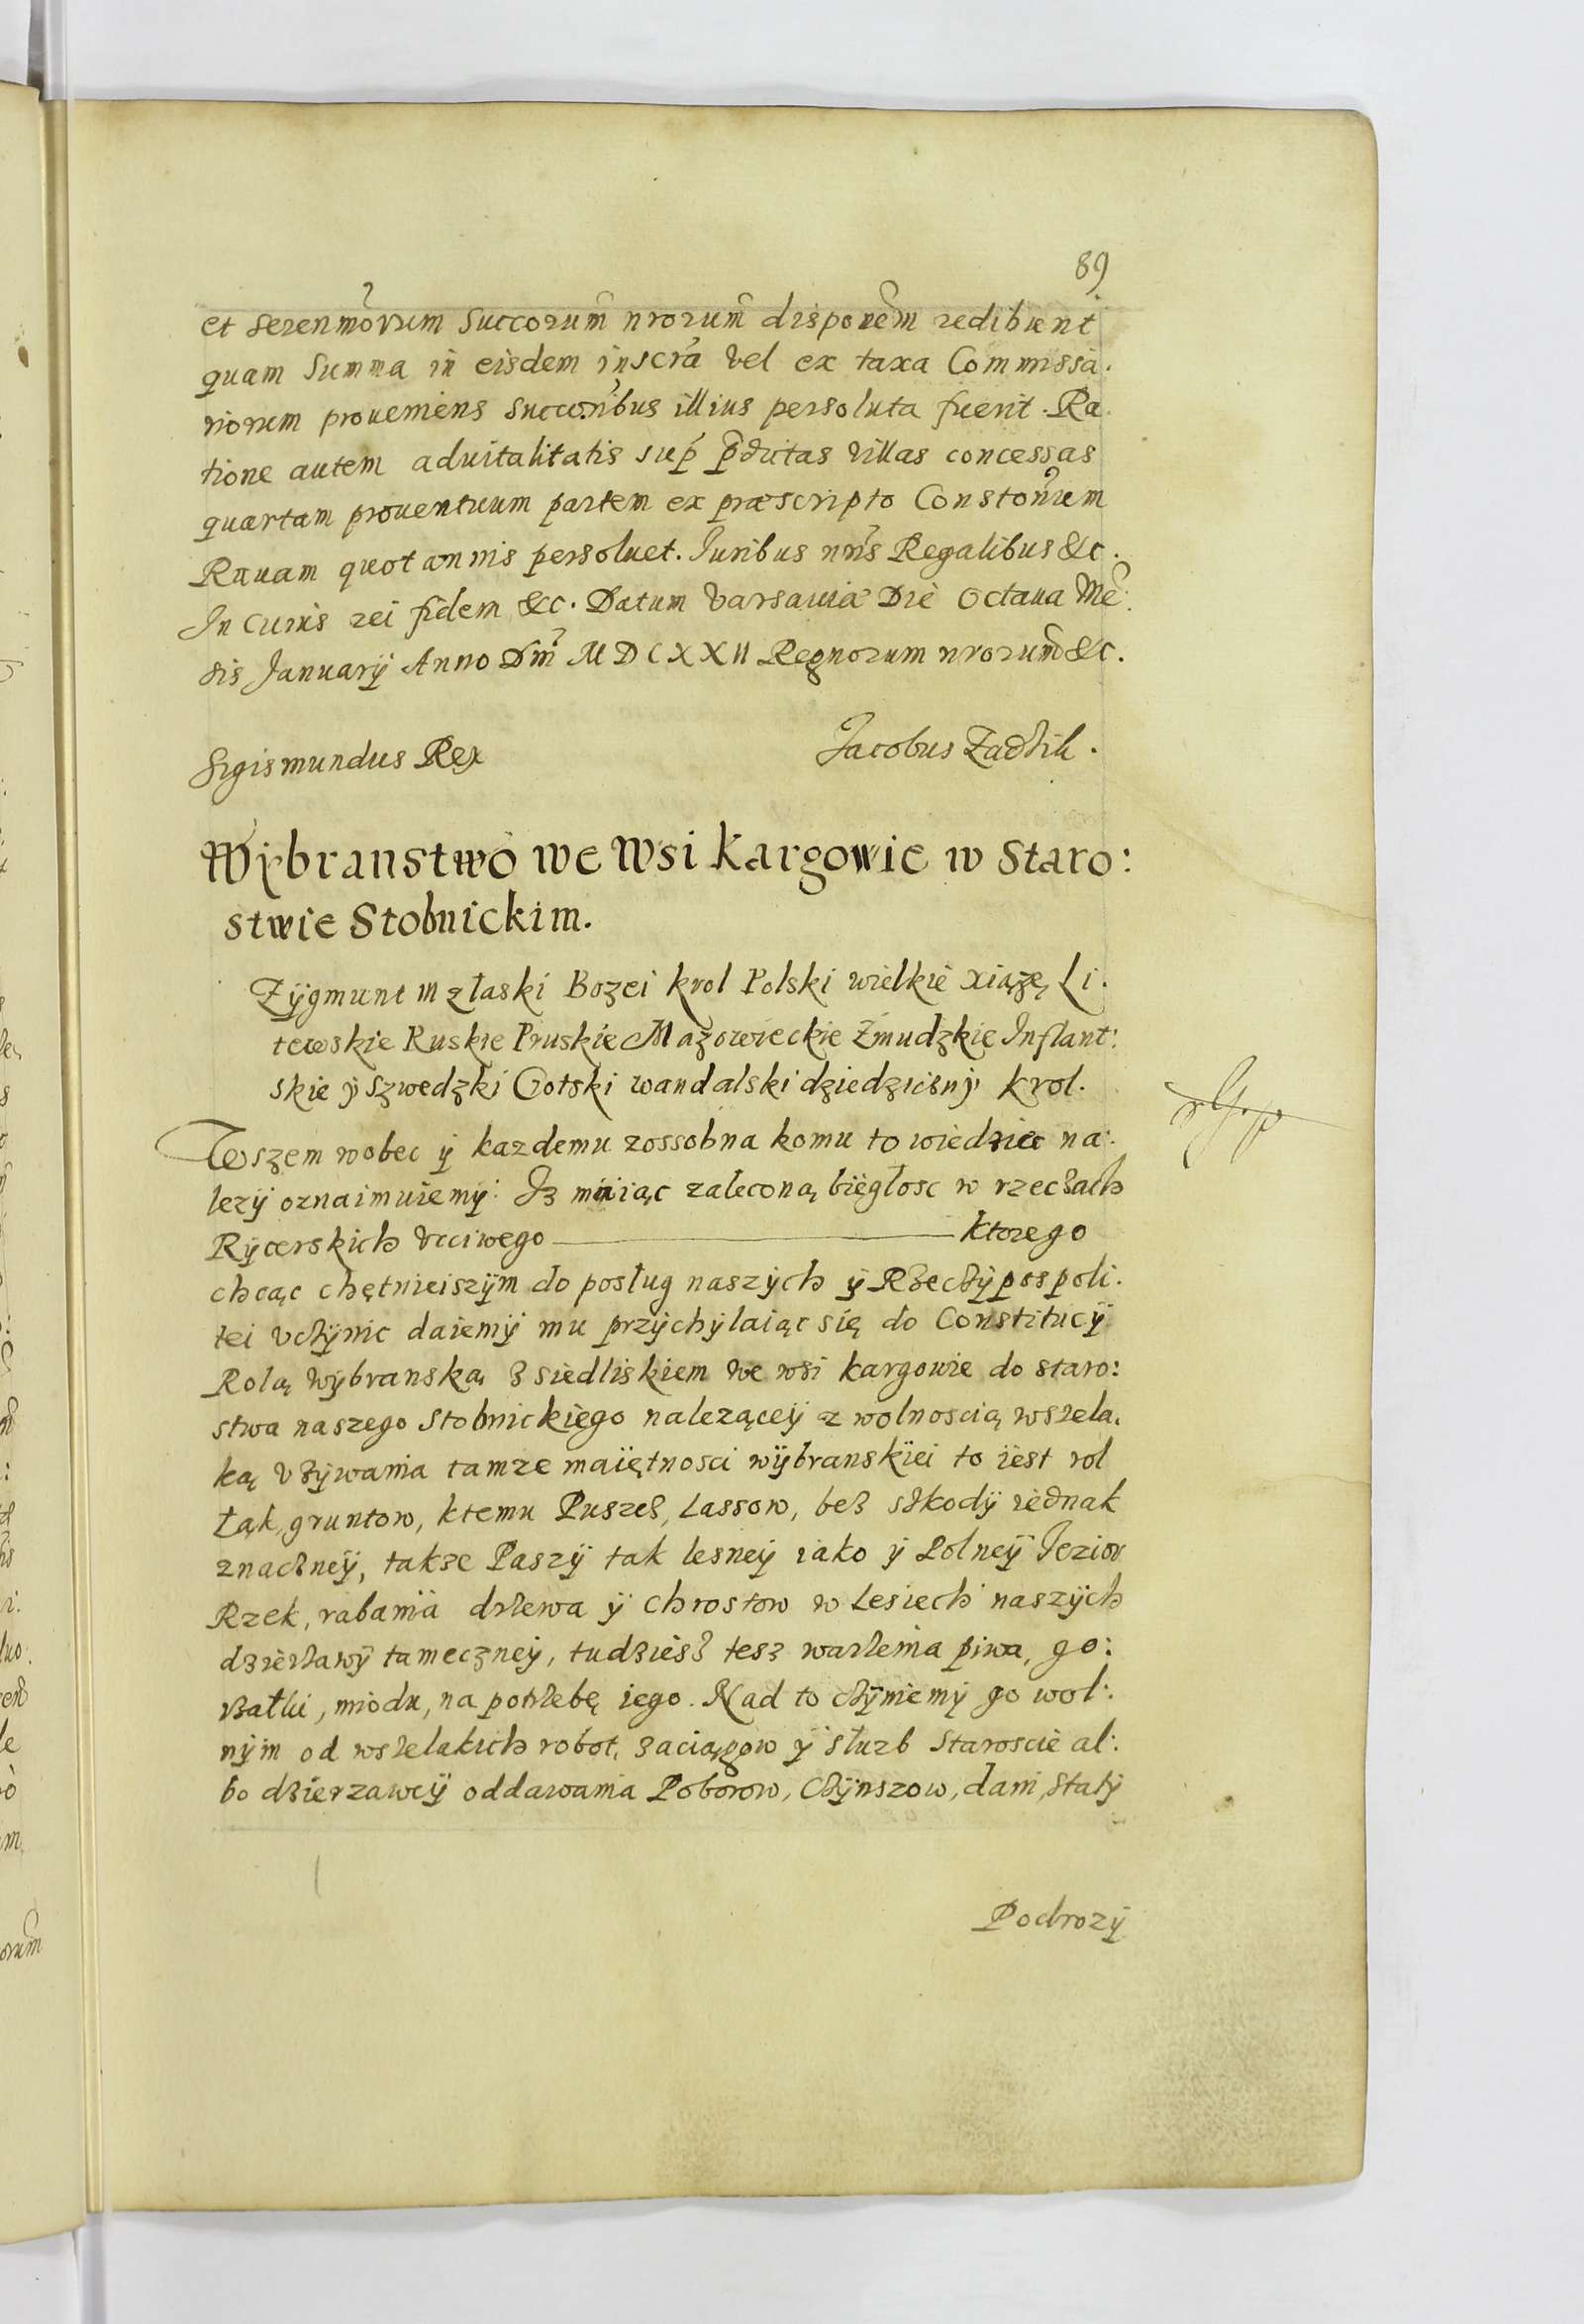 89
et seren͂morum Succorum͂ nrorum͂ disponem͂ redibunt
quam Summa in eisdem inscra͂ vel ex taxa Commissa.
riorum proueniens Succoribus illius persoluta fuerit. Ra.
tione autem aduitalitatis sup̱ p̱dictas villas concessas
quartam prouentuum partem ex præscripto Constonum͂
Rauam quotannis persoluet. Iuribus nris͂ Regalibus &c.
In cuius rei fidem &c. Datum Varsauiæ Die Octaua Me͂:
sis Januarÿ Anno Dni͂ MDCXXII Regnorum nrorum͂ &c.
Sigismundus Rex Jacobus Zadzik.
Wybranstwo we Wsi Kargowie w Staro:
stwie Stobnickim.
Zÿgmunt III z łaski Bozei krol Polski wielkie xiązę Li.
tewskie Ruskie Pruskie Mazowieckie Zmudzkie Inflant:
skie ÿ Szwedzki Gotski wandalski dziedziczny krol.
Wszem wobec ÿ kazdemu zossobna komu to wiedziec na:
lezÿ oznaimuiemÿ. Iz maiąc zaleconą biegłosc w rzeczach
Rÿcerskich vcciwego ktorego
chcąc chętnieiszÿm do posług naszÿch ÿ Rzeczÿpospoli.
tei vczÿnic daiemÿ mu przÿchÿlaiąc się do Constitucÿ
Rolą wÿbranską z siedliskiem we wsi kargowie do staro:
stwa naszego Stobnickiego naleząceÿ z wolnoscią wszela.
ką vzÿwania tamze maiętnosci wÿbranskiei to iest rol
Łąk, gruntow, ktemu Puszcz, Lassow, bez szkodÿ iednak
znaczneÿ, takze Paszÿ tak lesneÿ iako ÿ Polneÿ Jezior
Rzek, rabania drzewa ÿ chrostow w Lesiech naszÿch
dzierzawÿ tameczneÿ, tudziesz tesz warzenia piwa, go:
rzałki, miodu, na potrzebę iego. Nad to czÿniemÿ go wol:
nÿm od wszelakich robot, zaciągow ÿ słuzb Staroscie al:
bo dzierzawcÿ oddawania Poborow, Czÿnszow, dani, Stacÿ
Podrozÿ